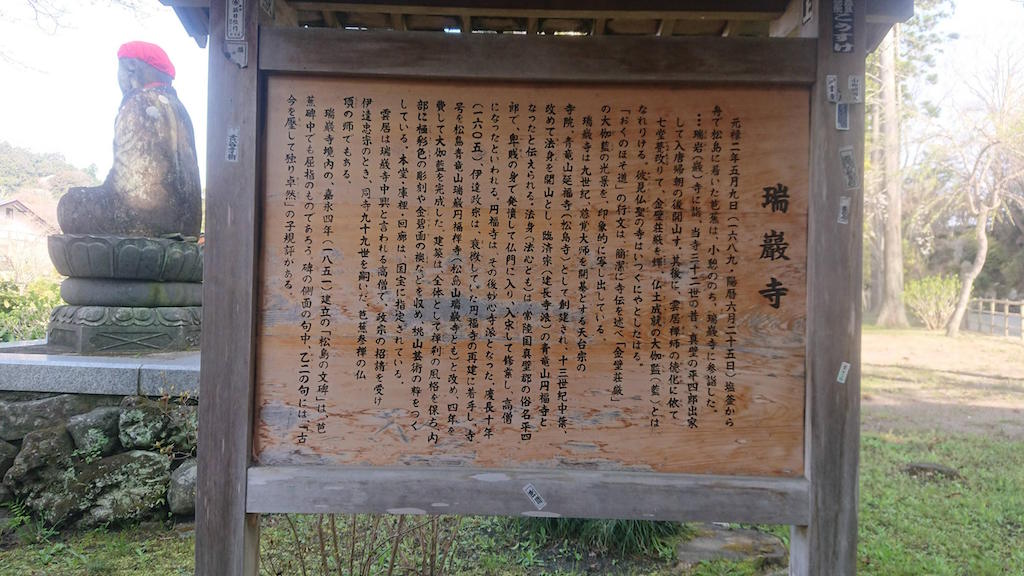 瑞巖寺
元禄二年五月九日(一六八九、陽暦六月二十五日)塩釜から
舟で松島に着いた芭蕉は、小憩ののち、瑞巌寺に参詣した。
…瑞岩(巌)寺に詣。当寺三十二世の昔、真壁の平四郎出家
して入唐帰朝の後開山す。其後に、雲居禅師の徳化に依て
七堂甍改りて、金壁荘厳光を輝、仏土成就の大伽藍(藍)とは
なれりける。彼見仏聖の寺はいづくにやとしたはる。
「おくのほそ道」の行文は、簡潔に寺伝を述べ、「金壁荘厳」
の大伽藍の光景を、印象的に写し出している。
瑞巌寺は九世紀、慈覚大師を開基とする天台宗の
寺院、青竜山延福寺(松島寺)として創建され、十三世紀中葉、
改めて法身を開山とし、臨済宗(建長寺派)の青竜山円福寺と
なったと伝えられる。法身(法心とも)は常陸国真壁郡の俗名平四
郎で、卑賎の身で発憤して仏門に入り、入宋して修業し、高僧
になったといわれる。円福寺は、その後妙心寺派となった。慶長十年
(一六〇五)、伊達政宗は、衰微していた円福寺の再建に着手し、寺
号を松島青竜山瑞巌円福禅寺(松島山瑞巌寺とも)と改め、四年を
費して大伽藍を完成した。建築は全体として禅刹の風格を保ち、内
部に極彩色の彫刻や金碧画の襖などを収め、桃山芸術の粋をつく
している。本堂・庫裡・回廊は、国宝に指定されている。
雲居は瑞巌寺中興と言われる高僧で、政宗の招請を受け
伊達忠宗のとき、同寺九十九世を嗣いだ。芭蕉参禅の仏
頂の師でもある。
瑞巌寺境内の、嘉永四年(一八五一)建立の「松島の文碑」は、芭
蕉碑中でも屈指のものであろう。碑の側面の句中、乙二の句には、「古
今を歴して独り卓然」の子規評がある。